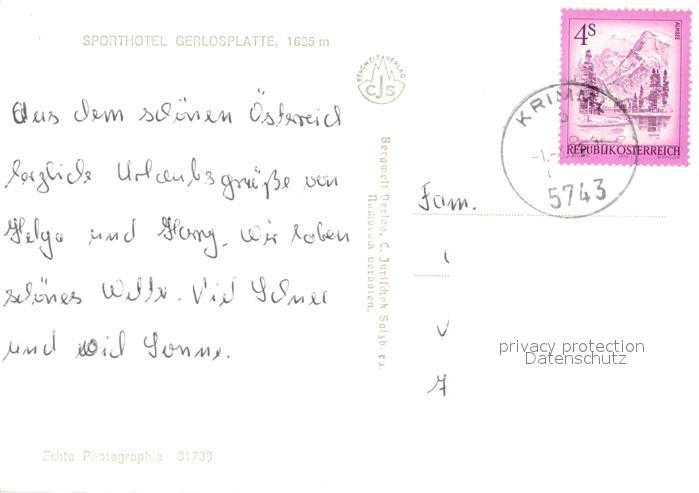 SPORTHOTEL GERLOSPLATTE, 1695 m
BERGWELT VERLAG
CJS
Aus dem schönen Österreich
herzliche Urlaubsgrüße von
Helga und Harry. Wir haben
schönes Wetter. Viel Schnee
und viel Sonne.
Echte Photographie 31739
Bergwelt Verlag, C. Jurischek Salzburg
Nachdruck verboten.
4S
ALMSEE
REPUBLIK ÖSTERREICH
KRIMML
5743
Fam.
privacy protection
Datenschutz